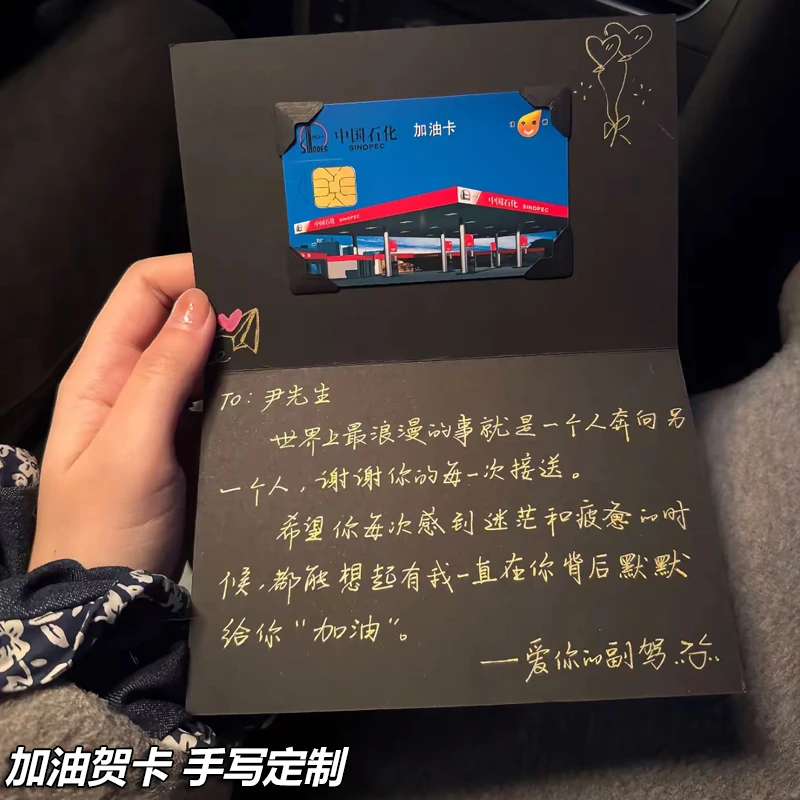 中国石化 加油卡
SINOPEC
中国石化 SINOPEC
中国石化 SINOPEC
To: 尹先生
世界上最浪漫的事就是一个人奔向另
一个人，谢谢你的每一次接送。
希望你每次感到迷茫和疲惫的时
候，都能想起有我一直在你背后默默
给你“加油”。
——爱你的副驾
加油贺卡 手写定制